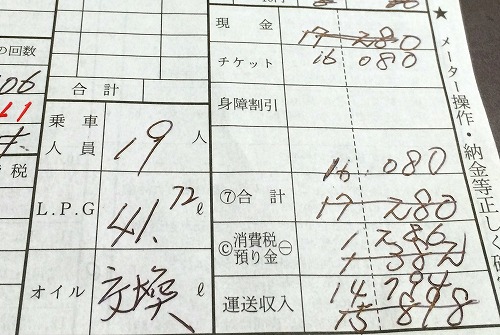 現金 17 280
チケット 16 080
の回数
身障割引
106
合計
11
乗車人員 19 人
税
16 080
⑦合計 17 280
L.P.G 41.72 ℓ
Ⓒ消費税預り金㊀ 1 286
1 382
オイル 交換 ℓ
運送収入 14 794
15 898
★メーター操作・納金等正しく確